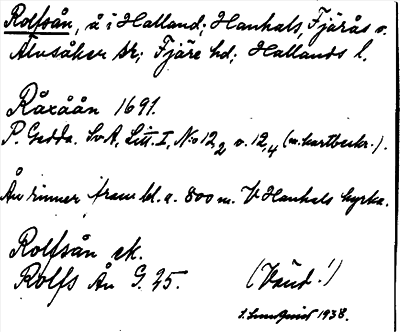 Rolfsån, å i Halland; Hanhals, Fjärås o.
Älvsåker sn; Fjäre hd; Hallands l.
Råxåån 1691.
P. Gedda. SvA, Litt. I, No 12,2 o. 12,4 (m. kartbeskr.).
Ån rinner fram bl. a. 800 m. V Hanhals kyrka.
Rolfsån ek.
Rolfs Ån G. 25. (Vänd!)
S. Lundquist 1938.